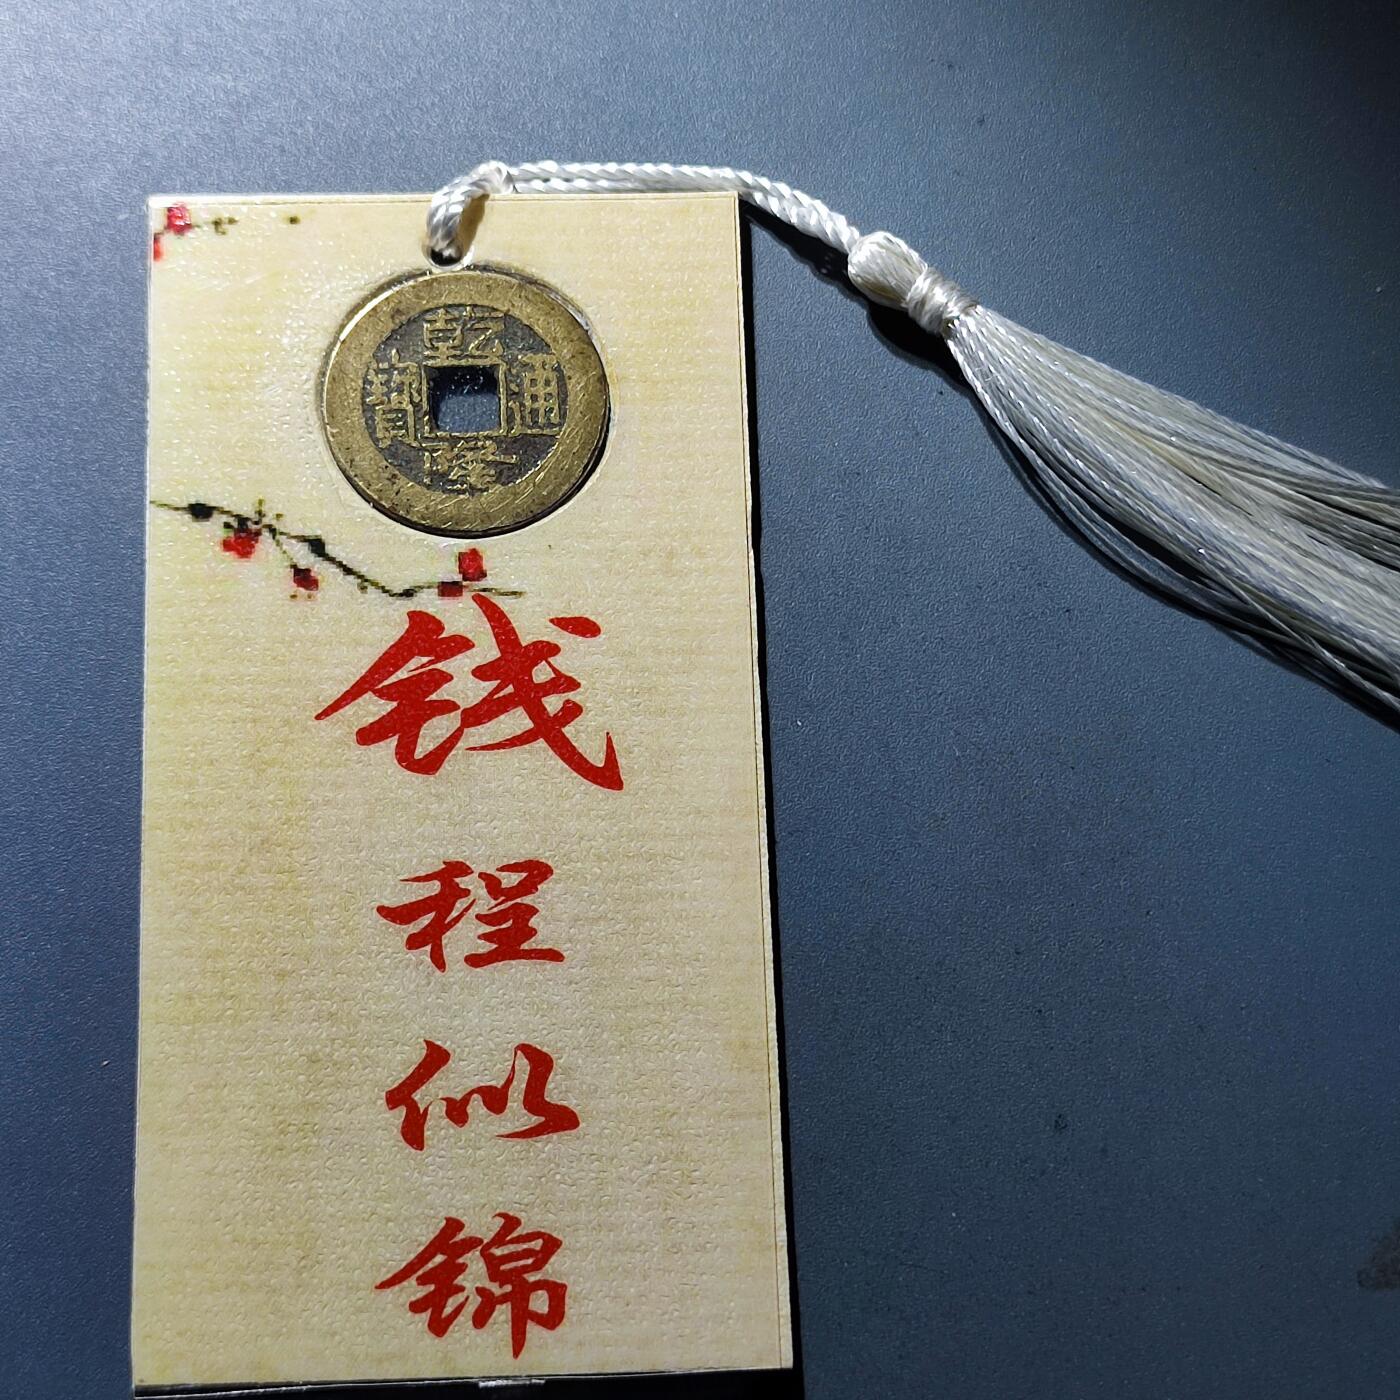 乾隆通寶
钱程似锦